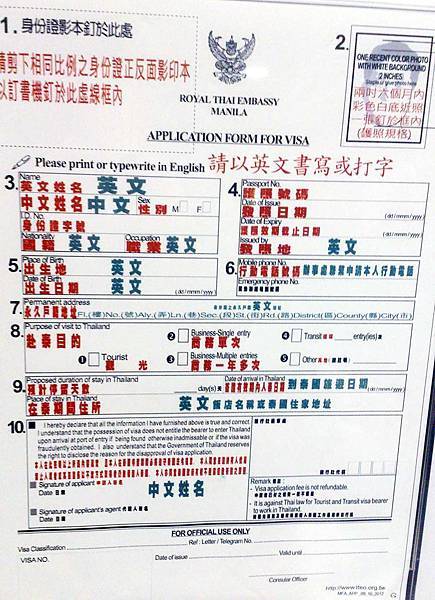 1. 身份證影本釘於此處
請剪下相同比例之身份證正反面影印本
以訂書機釘於此虛線框內
ROYAL THAI EMBASSY
MANILA
2.
ONE RECENT COLOR PHOTO
WITH WHITE BACKGROUND
2 INCHES
Staple or glue photo here
兩吋六個月內
彩色白底近照
一張釘於框內
(護照規格)
APPLICATION FORM FOR VISA
Please print or typewrite in English 請以英文書寫或打字
3. Name
英文姓名 英文
中文姓名 中文 Sex 性別 M F
I.D. No.
身份證字號
Nationality Occupation
國籍 英文 職業 英文
4. Passport No.
護照號碼
Date of Issue
發照日期 (dd / mmm / yyyy)
Date of Expiry
護照效期截止日期 (dd / mmm / yyyy)
Issued by
發照地 英文
5. Place of Birth
出生地 英文
Date of Birth
出生日期 (dd / mmm / yyyy)
6. Mobile phone No.
行動電話號碼 辦事處聯繫申請本人行動電話
Emergency phone No.
7. Permanent address
永久戶籍地址 英文
FL.(樓)No.(號)Aly.(弄)Ln.(巷)Sec.(段)St.(街)Rd.(路)District(區)County(縣)City(市)
8. Purpose of visit to Thailand
赴泰目的
1 Tourist
觀光
2 Business-Single entry
商務單次
3 Business-Multiple entries
商務一年多次
4 Transit entry(ies)
5 Other
9. Proposed duration of stay in Thailand
預計停留天數 day(s)
Date of arrival in Thailand
到泰國旅遊日期
(dd / mmm / yyyy)
Place of stay in Thailand
在泰期間住所 英文 飯店名稱或泰國住家地址
10. I hereby declare that all the information I have furnished above is true and correct
I understand that the possession of visa does not entitle the bearer to enter Thailand
upon arrival at port of entry if being found otherwise inadmissable or if the visa was
fraudulently obtained. I also understand that the Government of Thailand reserves
the right to disclose the reason for the disapproval of visa application.
Signature of applicant
Date 日期
中文姓名
Signature of applicant's agent
Date 日期
旅行社代碼
Remark
- Visa application fee is not refundable.
- It is against Thai law for Tourist and Transit visa bearer
to work in Thailand.
FOR OFFICIAL USE ONLY
Ref : Letter / Telegram No.
Visa Classification
VISA NO.
Date of issue
Valid until
Consular Officer
http://www.tteo.org.tw